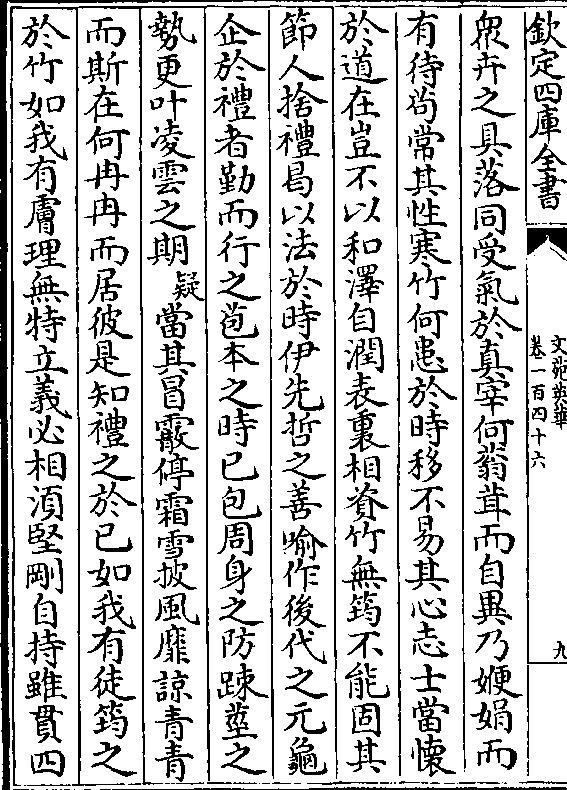 欽定四庫全書
文苑英華
卷一百四十六
九
衆卉之具落同受氣於真宰何蓊茸而自異乃㛹娟而
有待尚常其性寒竹何患於時移不易其心志士當懷
於道在豈不以和澤自潤表裏相資竹無筠不能固其
節人捨禮曷以法於時伊先哲之善喻作後代之元龜
企於禮者勤而行之苞本之時已包周身之防踈莖之
勢更叶凌雲之期疑當其冒霰停霜雪披風靡諒青青
而斯在何冉冉而居彼是知禮之於已如我有徒筠之
於竹如我有膚理無特立義必相湏堅剛自持雖貫四